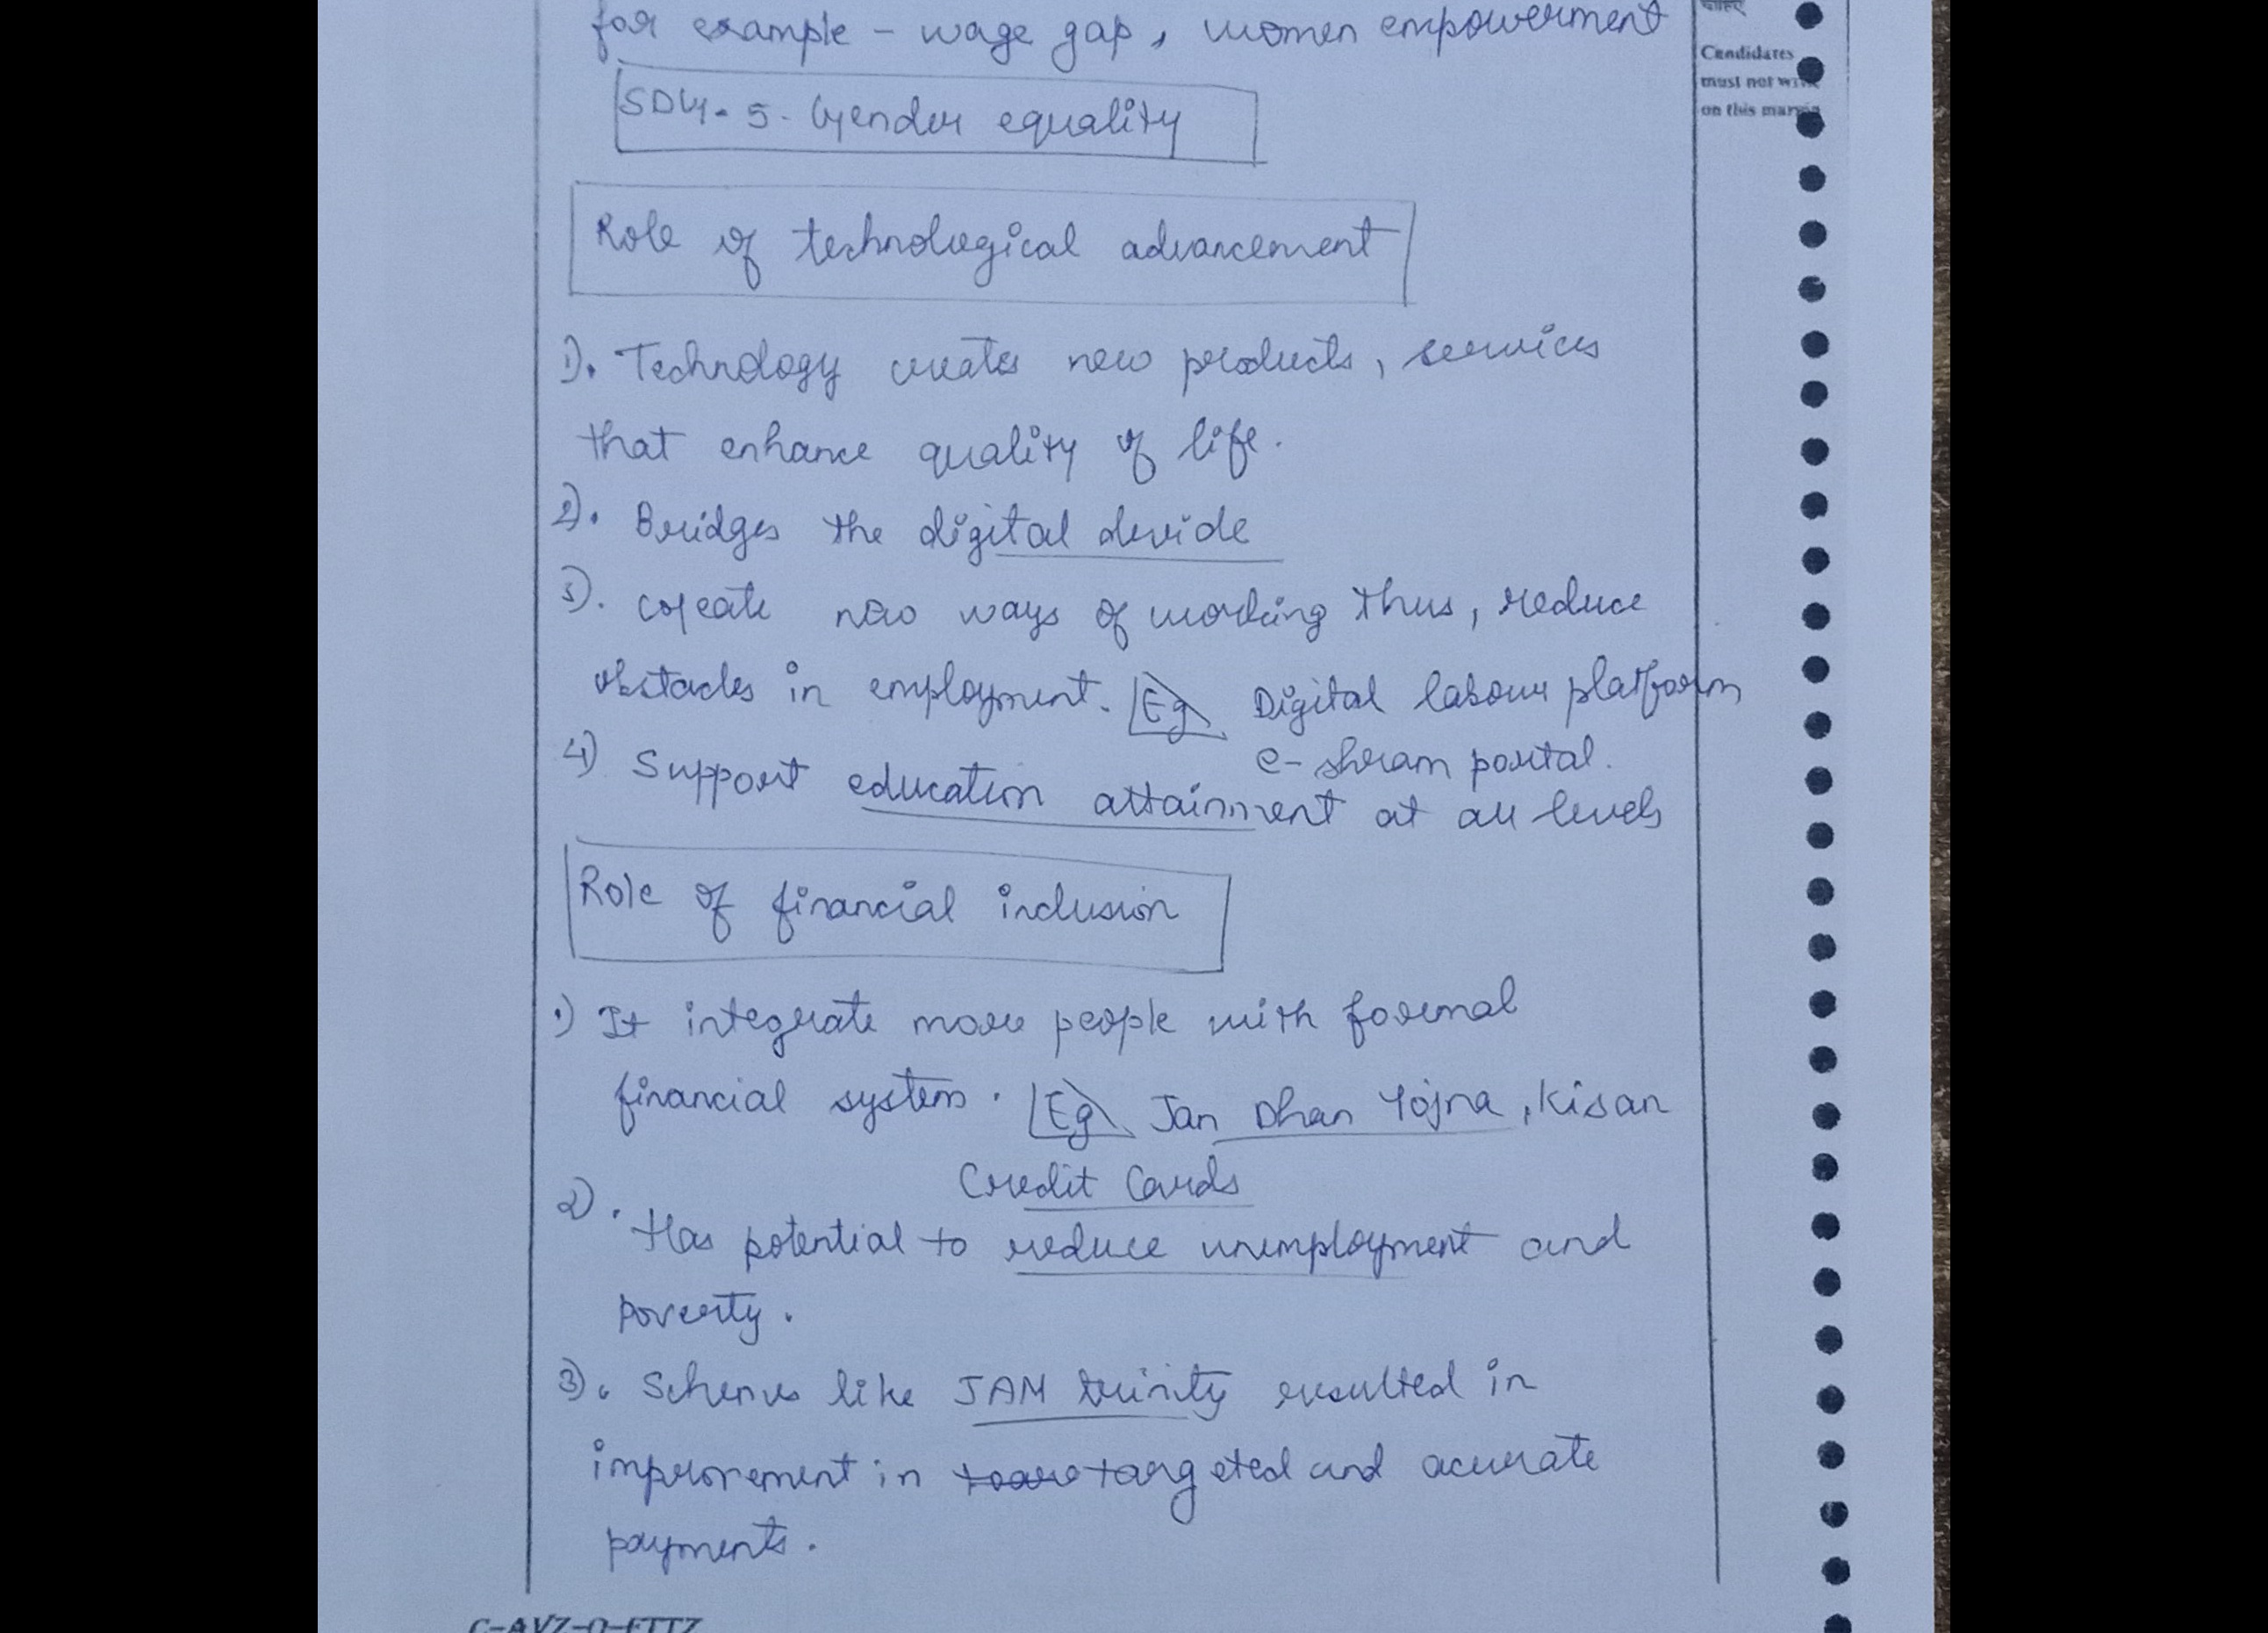 for example - wage gap, women empowerment
SDG. 5. Gender equality
Candidates
must not write
on this margin
Role of technological advancement
1). Technology creates new products, services
that enhance quality of life.
2). Bridges the digital devide
3). create new ways of working thus, reduce
obstacles in employment. Eg Digital labour platform,
e-shram portal.
4) Support education attainment at all levels
Role of financial inclusion
1) It integrate more people with formal
financial system. Eg Jan Dhan Yojna, Kisan
Credit Cards
2). Has potential to reduce unemployment and
poverty.
3). Schemes like JAM trinity resulted in
improvement in targeted and acurate
payments.